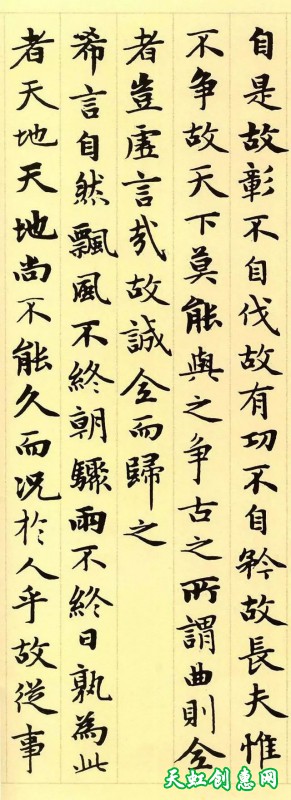 自是故彰不自伐故有功不自矜故長夫惟
不争故天下莫能與之争古之所謂曲則全
者豈虛言哉故誠全而歸之
希言自然飄風不終朝驟雨不終日孰為此
者天地天地尚不能久而況於人乎故從事
天虹创惠网